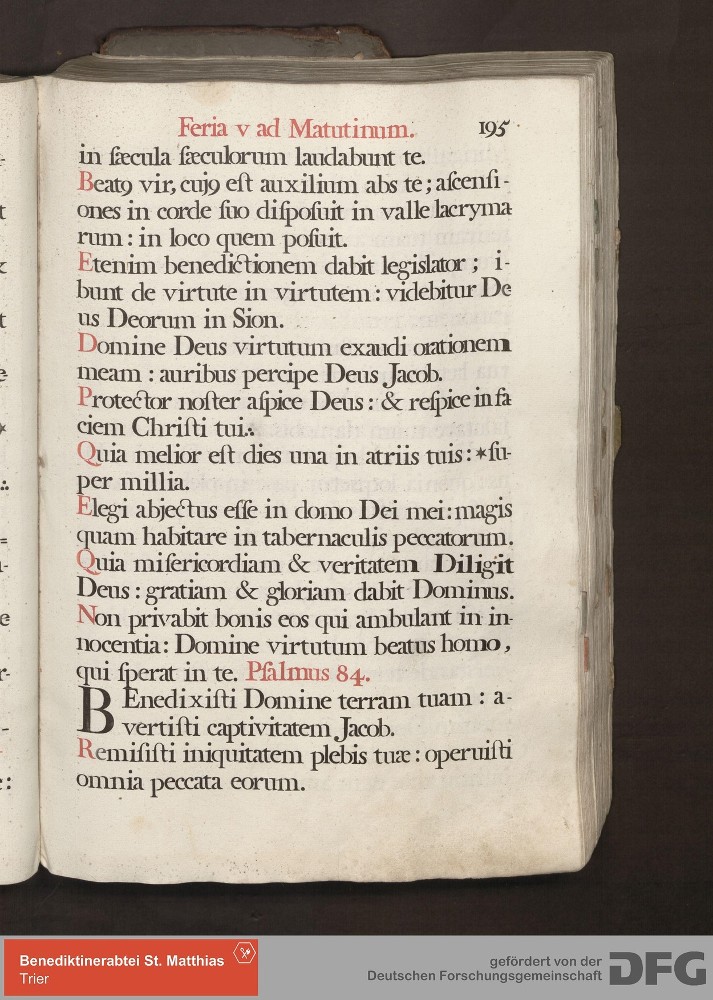 Feria v ad Matutinum. 195
in ſæcula ſæculorum laudabunt te.
Beatꝰ vir, cujꝰ eſt auxilium abs te; aſcenſi-
ones in corde ſuo diſpoſuit in valle lacryma
rum: in loco quem poſuit.
Etenim benedictionem dabit legislator; i-
bunt de virtute in virtutem: videbitur De
us Deorum in Sion.
Domine Deus virtutum exaudi orationem
meam: auribus percipe Deus Jacob.
Protector noſter aſpice Deus: & reſpice in fa
ciem Chriſti tui.
Quia melior eſt dies una in atriis tuis: *ſu-
per millia.
Elegi abjectus eſſe in domo Dei mei: magis
quam habitare in tabernaculis peccatorum.
Quia miſericordiam & veritatem Diligit
Deus: gratiam & gloriam dabit Dominus.
Non privabit bonis eos qui ambulant in in-
nocentia: Domine virtutum beatus homo,
qui ſperat in te. Pſalmus 84.
BEnedixiſti Domine terram tuam: a-
vertiſti captivitatem Jacob.
Remiſiſti iniquitatem plebis tuæ: operuiſti
omnia peccata eorum.
Benediktinerabtei St. Matthias
Trier
gefördert von der
Deutschen Forschungsgemeinschaft
DFG